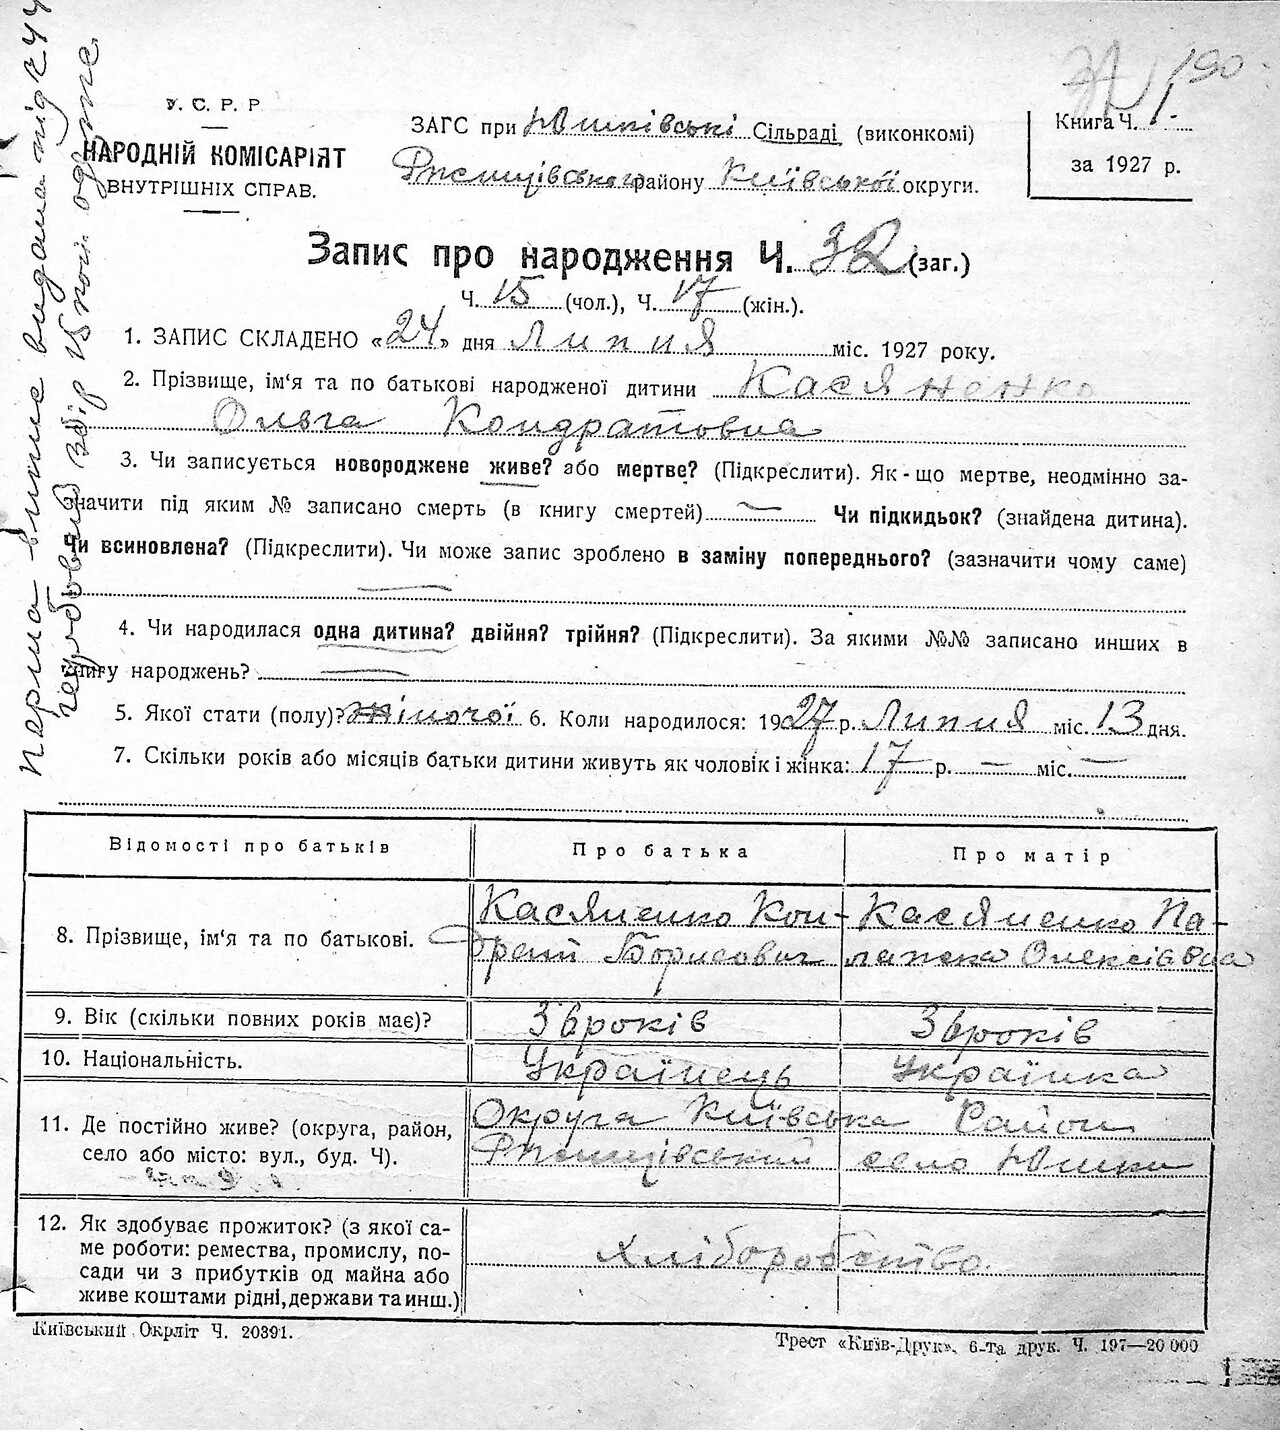 190
У. С. Р. Р
НАРОДНІЙ КОМІСАРІЯТ
ВНУТРІШНІХ СПРАВ.
ЗАГС при Юшківські Сільраді (виконкомі)
Ржищівського району Київської округи.
Книга Ч. 1.
за 1927 р.
Запис про народження Ч. 32 (заг.)
Ч. 15 (чол.), Ч. 17 (жін.).
1. ЗАПИС СКЛАДЕНО «24» дня Липня міс. 1927 року.
2. Прізвище, ім‘я та по батькові народженої дитини Касяненко
Ольга Кондратовна
3. Чи записується новороджене живе? або мертве? (Підкреслити). Як-що мертве, неодмінно за-
значити під яким № записано смерть (в книгу смертей) — Чи підкидьок? (знайдена дитина).
Чи всиновлена? (Підкреслити). Чи може запис зроблено в заміну попереднього? (зазначити чому саме)
—
4. Чи народилася одна дитина? двійня? трійня? (Підкреслити). За якими №№ записано инших в
книгу народжень? —
5. Якої стати (полу)? жіночої 6. Коли народилося: 1927 р. Липня міс. 13 дня.
7. Скільки років або місяців батьки дитини живуть як чоловік і жінка: 17 р. — міс. —
Відомості про батьків
Про батька
Про матір
8. Прізвище, ім‘я та по батькові.
Касяненко Кон-
драт Борисович
Касяненко Па-
лажка Олексіавна
9. Вік (скільки повних років має)?
36 років
36 років
10. Національність.
Українець
Українка
11. Де постійно живе? (округа, район,
село або місто: вул., буд. Ч).
Округа Київська Район
Ржищівський село Юшки
12. Як здобуває прожиток? (з якої са-
ме роботи: ремества, промислу, по-
сади чи з прибутків од майна або
живе коштами рідні, держави та инш.)
Хліборобство.
Київський Окрліт Ч. 20391.
Трест «Київ-Друк», 6-та друк. Ч. 197—20 000
Перша випис видана під ч
гербовий збір 15 коп. одрж